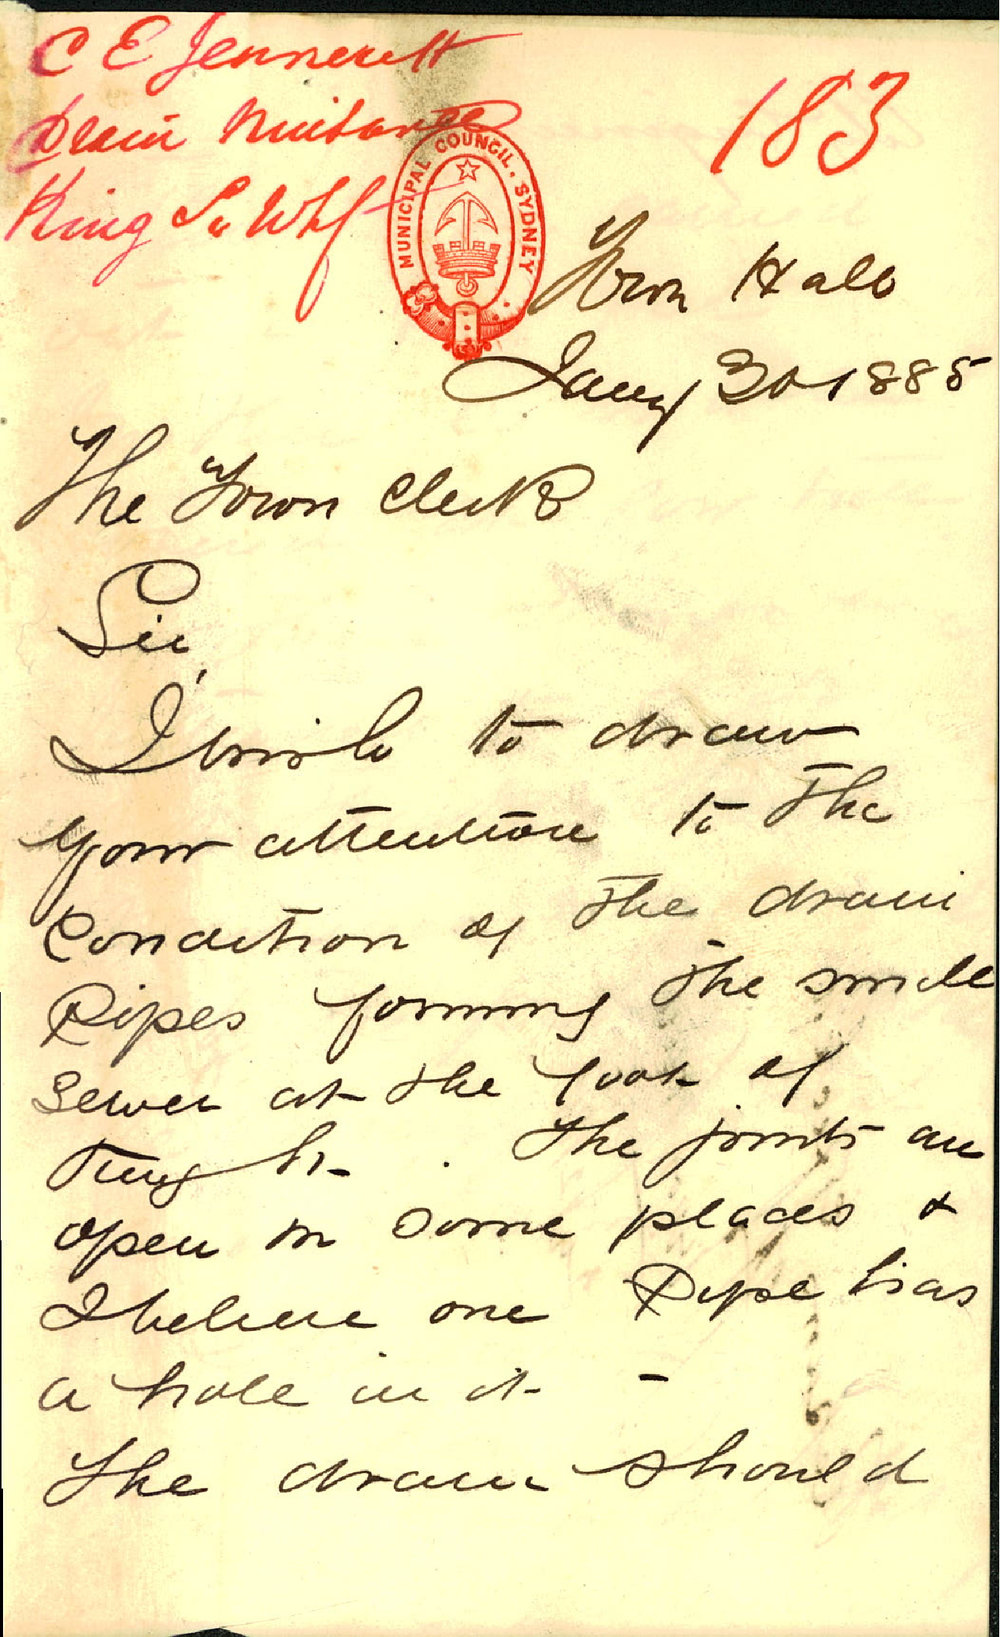 C E Jeannerett
Drain Nuisance
King St Whf
183
MUNICIPAL COUNCIL. SYDNEY
Town Hall
Jany 30 1885
The Town Clerk
Sir,
I wish to draw
your attention to the
Condition of the drain
Pipes forming the
Sewer at the foot of
King St . The joints are
open in some places &
I believe one Pipe has
a hole in it -
The drain should